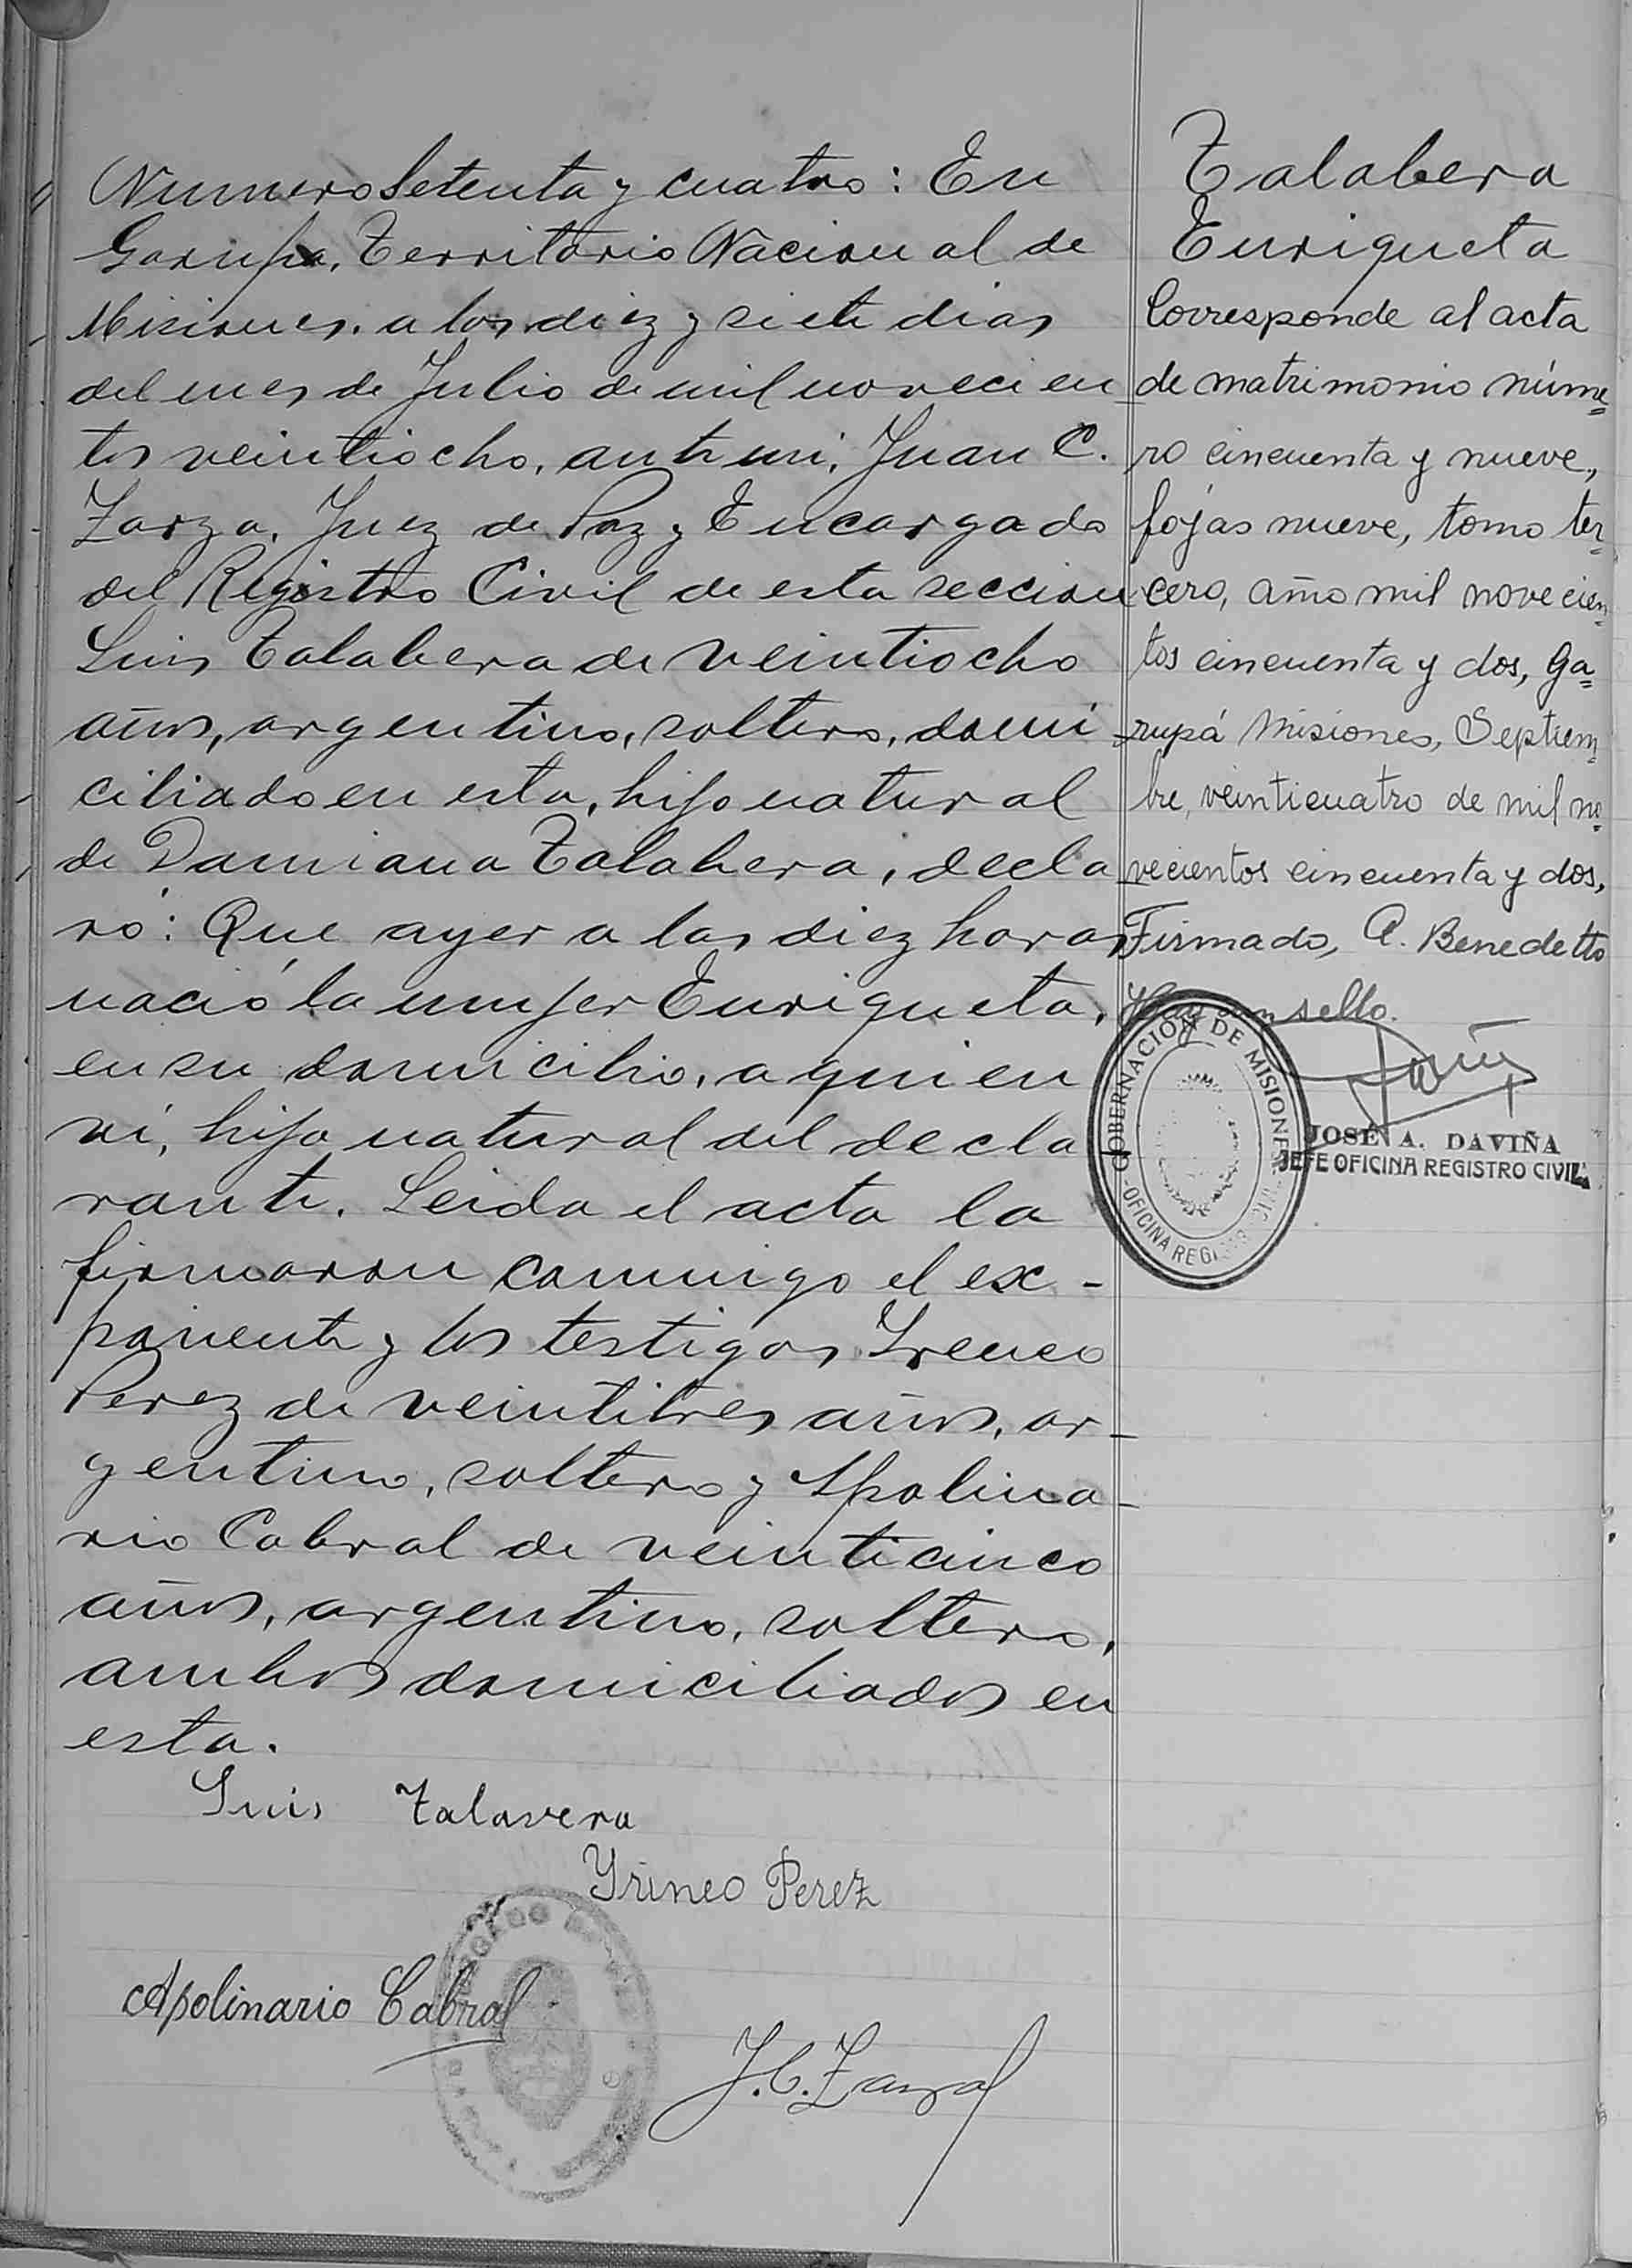 Numero Setenta y cuatro: En
Garupa, Territorio Nacional de
Misiones. a los diez y siete dias
del mes de Julio de mil novecien
tos veintiocho, ante mi, Juan C.
Zarza, Juez de Paz y Encargado
del Registro Civil de esta seccion
Luis Talabera de veintiocho
años, argentino, soltero, domi
ciliado en esta, hijo natural
de Damiana Talabera, decla
ró: Que ayer a las diez horas
nació la mujer Enriqueta,
en su domicilio, a quien
ví, hija natural del decla
rante. Leida el acta la
firmaron conmigo el ex-
ponente y los testigos Ireneo
Perez de veintitres años, ar-
gentino, soltero y Apolina-
rio Cabral de veinticinco
años, argentino, soltero,
ambos domiciliados en
esta.
Luis Talavera
Yrineo Perez
Apolinario Cabral
J. C. Zarza
Talabera
Enriqueta
Corresponde al acta
de matrimonio núme=
ro cincuenta y nueve,
fojas nueve, tomo ter=
cero, año mil novecien=
tos cincuenta y dos, Ga=
rupá Misiones, Septiem=
bre, veinticuatro de mil no=
vecientos cincuenta y dos,
Firmado, A. Benedetto
Hay un sello.
GOBERNACIÓN DE MISIONES
OFICINA REGISTRO CIVIL
JOSÉ A. DAVIÑA
JEFE OFICINA REGISTRO CIVIL